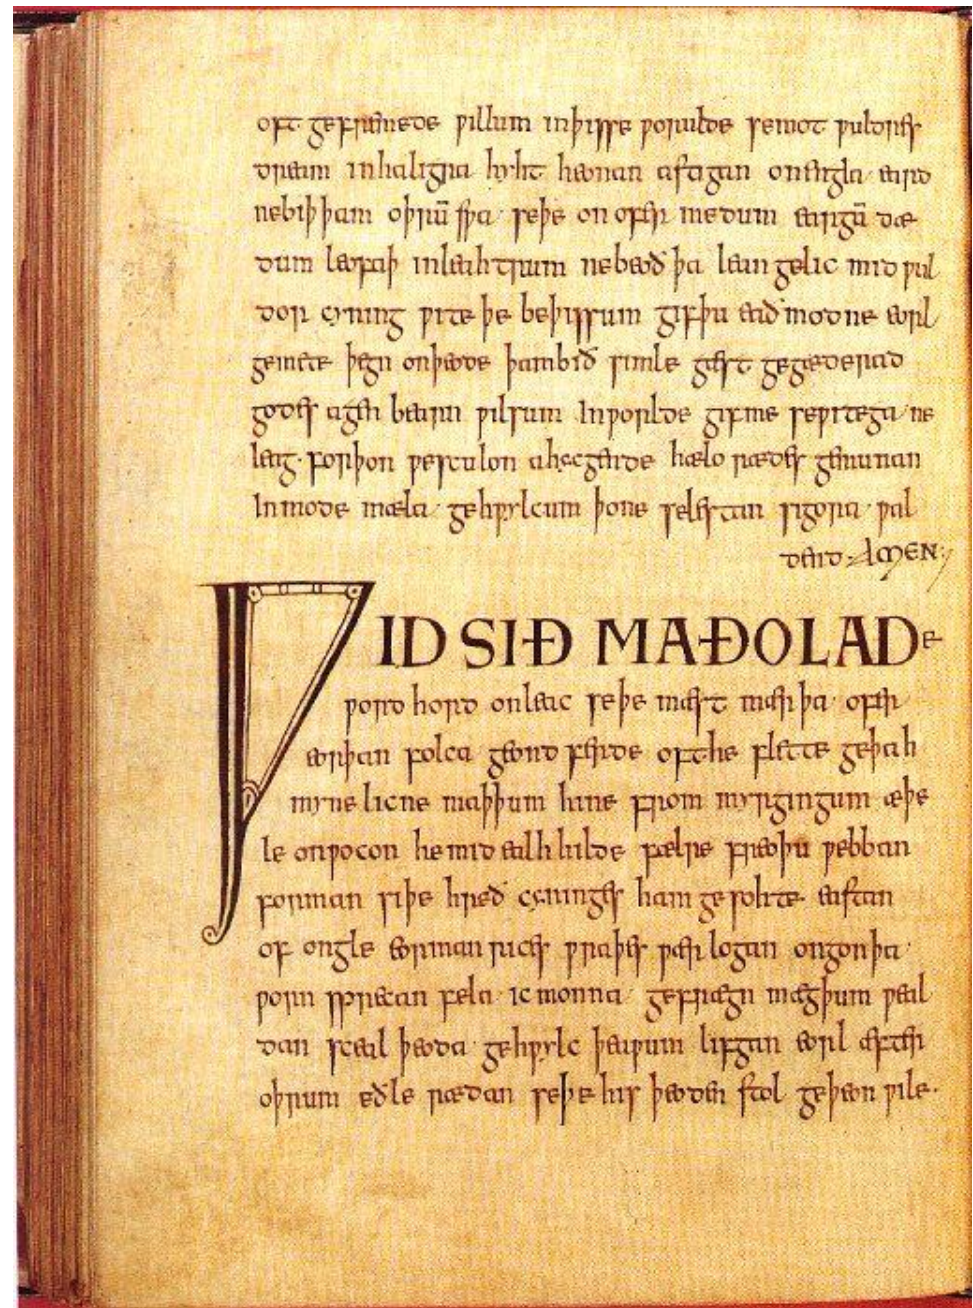 oft gefremede ƿillum inþisse ƿorulde semot ƿuldres
dream inhaligra hyht heonan astigan onengla eard
nebiþ þam oþrū sƿa seþe on ofer medum eargū dæ
dum leofaþ inleahtrum nebeoð þa lean gelic mid ƿul
dor cyning ƿite þe beþissum gif þu ead modne eorl
gemete þegn onþeode þambið simle gæst gegæderad
godes agen bearn ƿilsum Inƿorlde gif me seƿitega ne
leag· forþon ƿesculon ahycgende hælo rædes gemunan
Inmode mæla gehƿylcum þone selestan sigora ƿal
dend· AMEN:7
ǷIDSIÐ MAÐOLADe
ƿord hord onleac seþe mæst mærþa ofer
eorþan folca geond ferde oft he flette geþah
mynelicne maþþum hine from myrgingum æþe
le onƿocon he mid ealhhilde fælre freoþu ƿebban
forman siþe hreð cyninges ham gesohte eastan
of ongle eormanrices ƿraþes ƿærlogan ongon þa
ƿorn sprecan fela ic monna gefrægn mægþum ƿeal
dan sceal þeoda gehƿylc þeaƿum lifgan eorl æfter
oþrum eðle rædan seþe his þeoden stol geþeon ƿile·